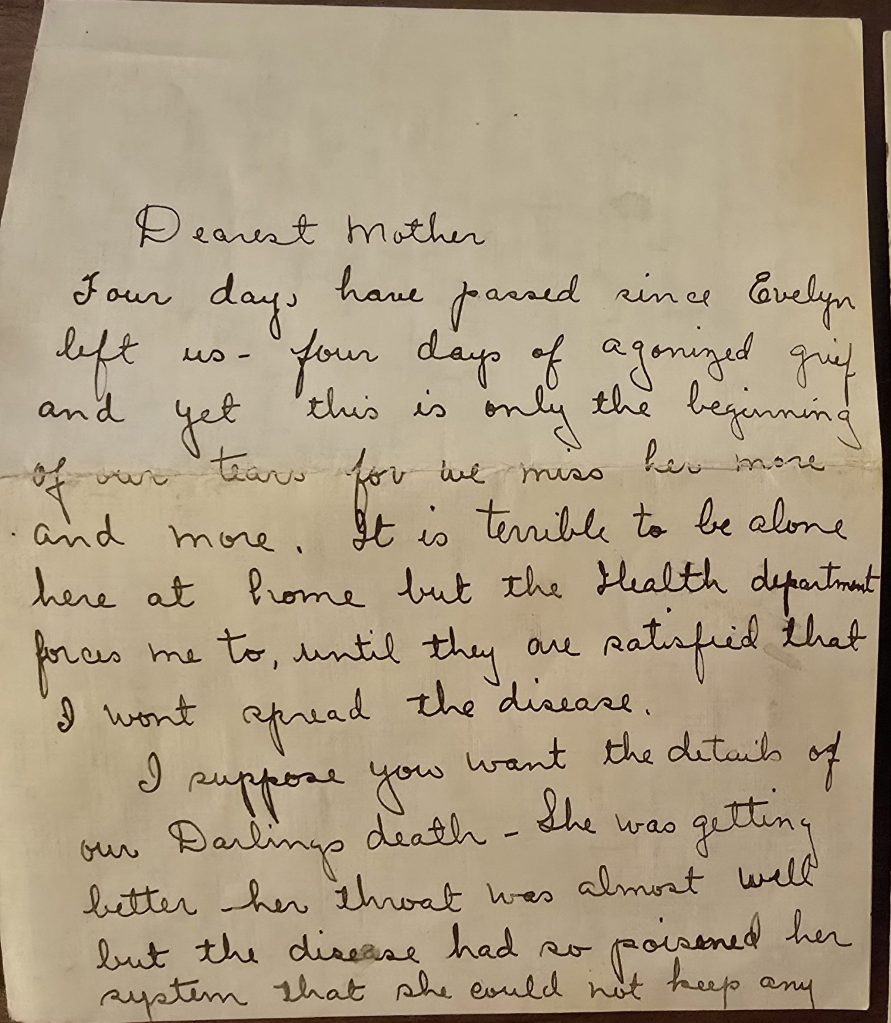 Dearest Mother
Four days have passed since Evelyn
left us - four days of agonized grief
and yet this is only the beginning
of our tears for we miss her more
and more. It is terrible to be alone
here at home but the Health department
forces me to, until they are satisfied that
I wont spread the disease.
I suppose you want the details of
our Darlings death - She was getting
better - her throat was almost well
but the disease had so poisened her
system that she could not keep any